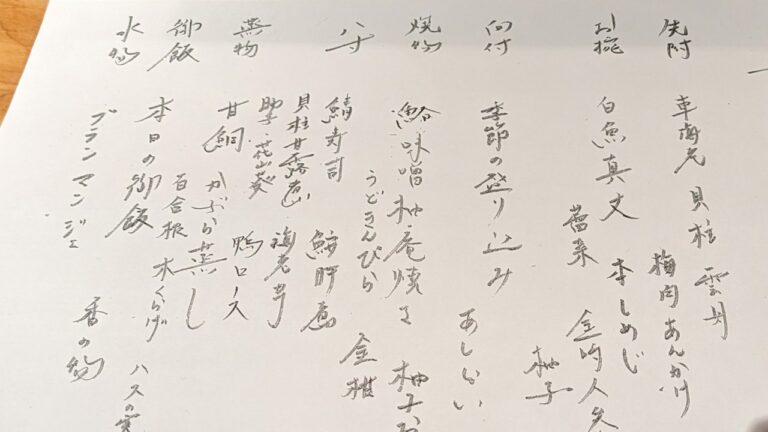 先附
車海老 貝柱 雲丹
梅肉あんかけ
お椀
白魚真丈 本しめじ
蕾菜 金時人参
柚子
向付
季節の盛り込み
あしらい
焼物
味噌柚庵焼き 柚子
うどきんぴら 金柑
八寸
鯖寿司 鮟肝煮
貝柱甘露煮 海老芋
花山葵 鴨ロース
蒸物
甘鯛 かぶら蒸し
百合根 木くらげ ハスの実
御飯
本日の御飯 香の物
水物
ブランマンジェ